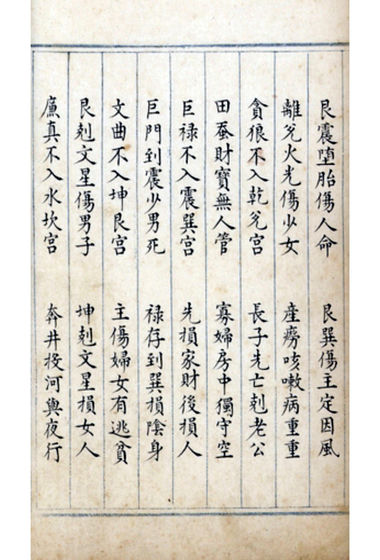 艮震堕胎傷人命　艮巽傷主定因風
離兊火光傷少女　産癆咳嗽病重重
貪狼不入乾兊宮　長子先亡剋老公
田蚕財寶無人管　寡婦房中獨守空
巨禄不入震巽宮　先損家財後損人
巨門到震少男死　禄存到巽損陰身
文曲不入坤艮宮　主傷婦女有逃貧
艮剋文星傷男子　坤剋文星損女人
廉真不入水坎宮　奔井投河與夜行